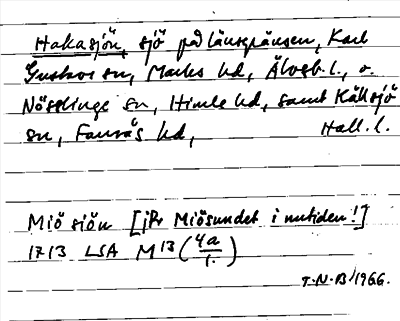 Hakasjön, sjö på länsgränsen, Karl
Gustavs sn, Marks hd, Älvsb. l., o.
Nösslinge sn, Himle hd, samt Källsjö
sn, Faurås hd, Hall. l.
Miö siön [jfr Miösundet i nutiden!]
1713 LSA M 13 (4a/1.)
T.N-B/1966.